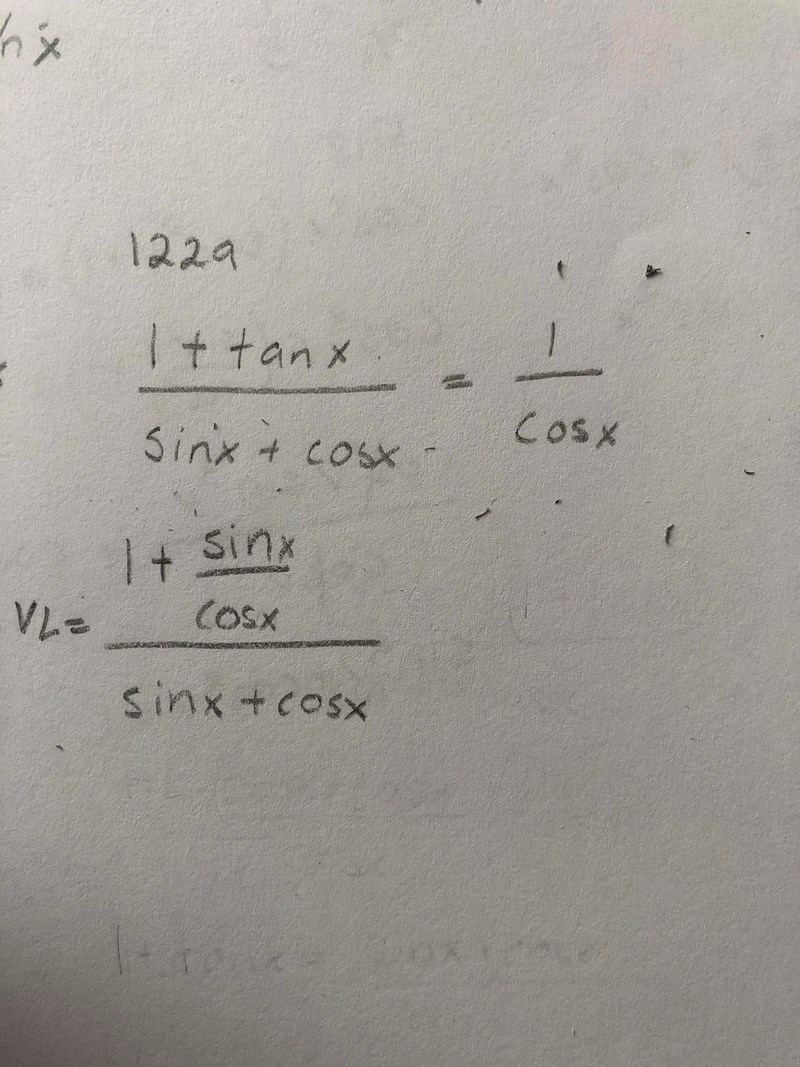 n x
1229
1 + tan x / sin x + cos x = 1 / cos x
VL = 1 + sin x / cos x / sin x + cos x
1 + tan x =